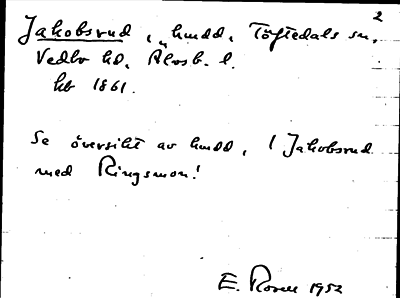 2
Jakobsrud, hmdd, Töftedals sn,
Vedbo hd, Älvsb. l.
hb 1861.
Se översikt av hmdd, 1 Jakobsrud
med Ringsmon!
E. Rosell 1952